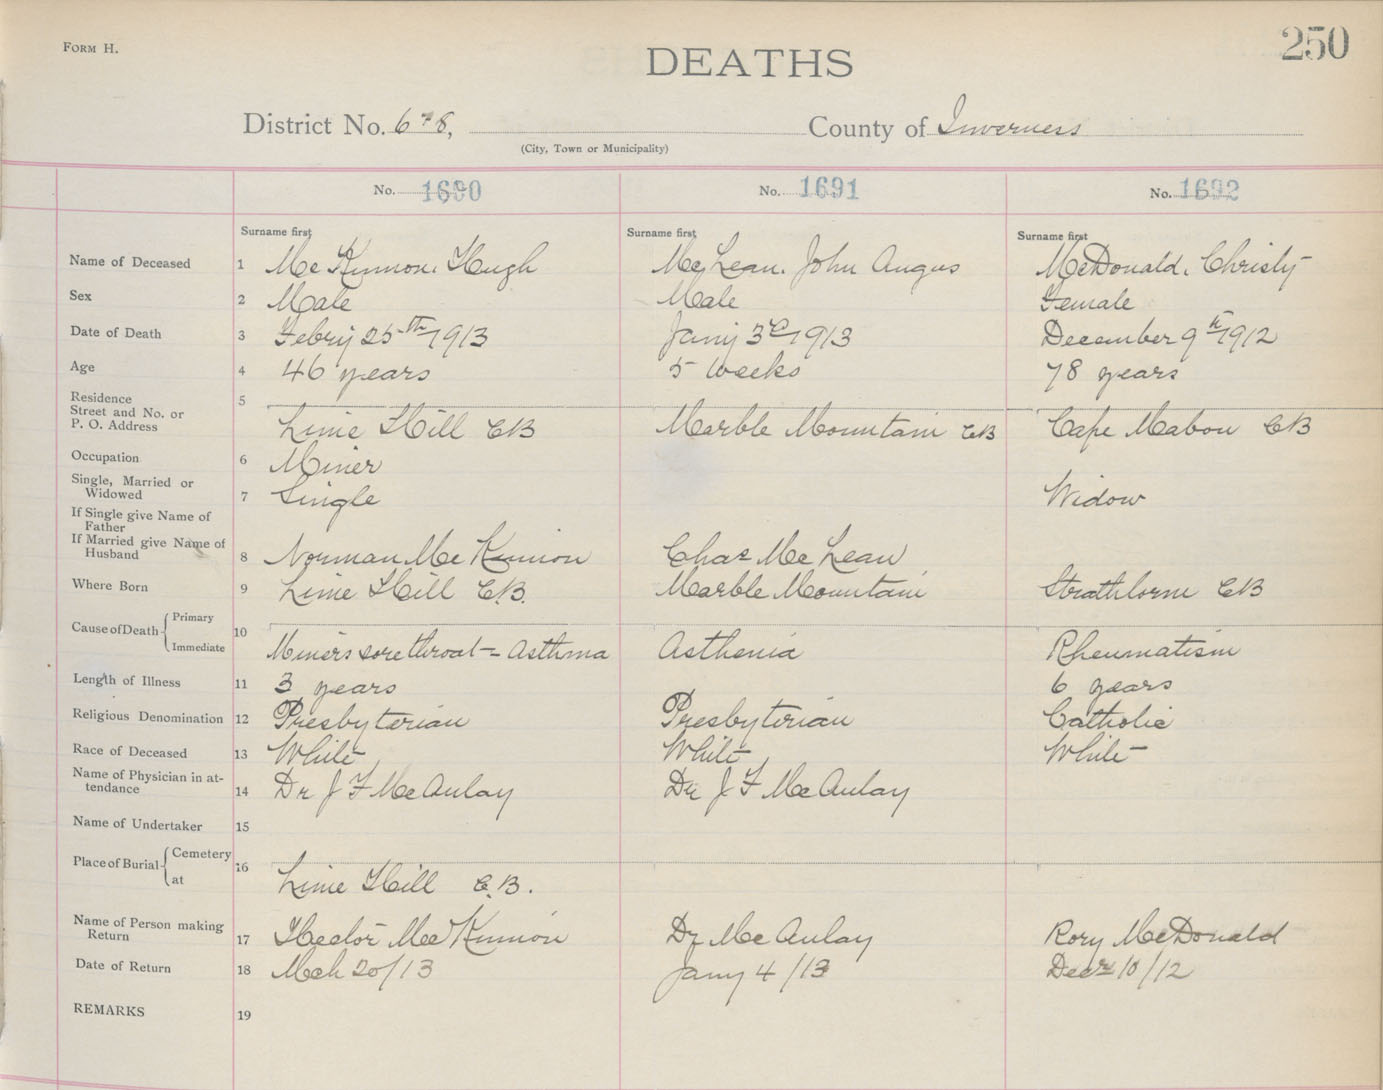 Form H.
250
DEATHS
District No. 6 & 8, County of Inverness
(City, Town or Municipality)
No. 1690 No. 1691 No. 1692
Surname first Surname first Surname first
Name of Deceased 1 McKinnon, Hugh McLean, John Angus McDonald, Christy
Sex 2 Male Male Female
Date of Death 3 Febry 25th 1913 Jany 3rd 1913 December 9th 1912
Age 4 46 years 5 weeks 78 years
Residence 5
Street and No. or
P. O. Address Lime Hill CB Marble Mountain CB Cape Mabou CB
Occupation 6 Miner
Single, Married or
Widowed 7 Single Widow
If Single give Name of
Father
If Married give Name of
Husband 8 Norman McKinnon Chas McLean
Where Born 9 Lime Hill C.B. Marble Mountain Strathlorne CB
Cause of Death Primary 10
Immediate Miners sore throat - Asthma Asthenia Rheumatism
Length of Illness 11 3 years 6 years
Religious Denomination 12 Presbyterian Presbyterian Catholic
Race of Deceased 13 White White White
Name of Physician in at-
tendance 14 Dr J F McAulay Dr J F McAulay
Name of Undertaker 15
Place of Burial Cemetery 16
at Lime Hill C.B.
Name of Person making
Return 17 Hector McKinnon Dr McAulay Rory McDonald
Date of Return 18 Mch 20/13 Jany 4/13 Decr 10/12
REMARKS 19